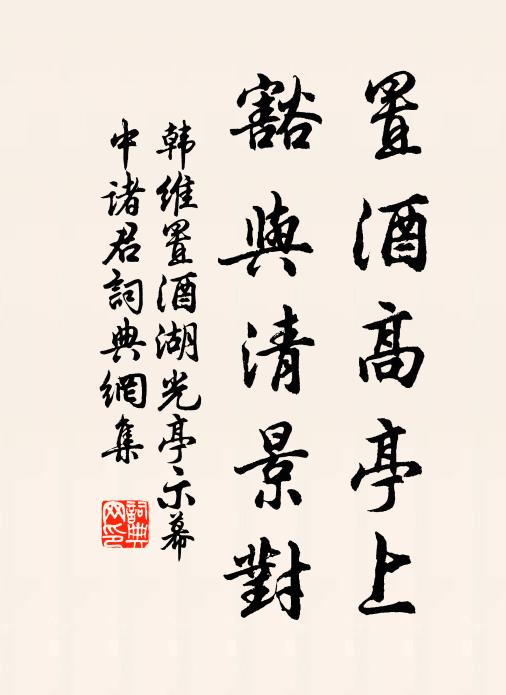 置酒高亭上
豁與清景對
韩維置酒湖光亭示幕
中諸君詞典網集
詞典
网印